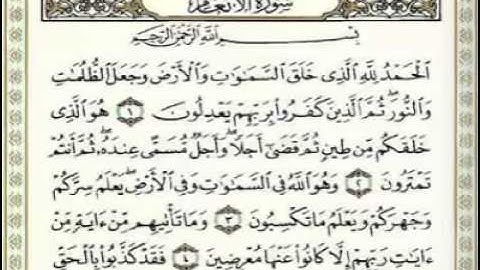 سُورَةُ الْأَنْعَامِ
بِسْمِ اللَّهِ الرَّحْمَٰنِ الرَّحِيمِ
الْحَمْدُ لِلَّهِ الَّذِي خَلَقَ السَّمَاوَاتِ وَالْأَرْضَ وَجَعَلَ الظُّلُمَاتِ
وَالنُّورَ ۖ ثُمَّ الَّذِينَ كَفَرُوا بِرَبِّهِمْ يَعْدِلُونَ ١ هُوَ الَّذِي
خَلَقَكُم مِّن طِينٍ ثُمَّ قَضَىٰ أَجَلًا ۖ وَأَجَلٌ مُّسَمًّى عِندَهُ ۖ ثُمَّ أَنتُمْ
تَمْتَرُونَ ٢ وَهُوَ اللَّهُ فِي السَّمَاوَاتِ وَفِي الْأَرْضِ ۖ يَعْلَمُ سِرَّكُمْ
وَجَهْرَكُمْ وَيَعْلَمُ مَا تَكْسِبُونَ ٣ وَمَا تَأْتِيهِم مِّنْ ءَايَةٍ مِّنْ
ءَايَاتِ رَبِّهِمْ إِلَّا كَانُوا عَنْهَا مُعْرِضِينَ ٤ فَقَدْ كَذَّبُوا بِالْحَقِّ